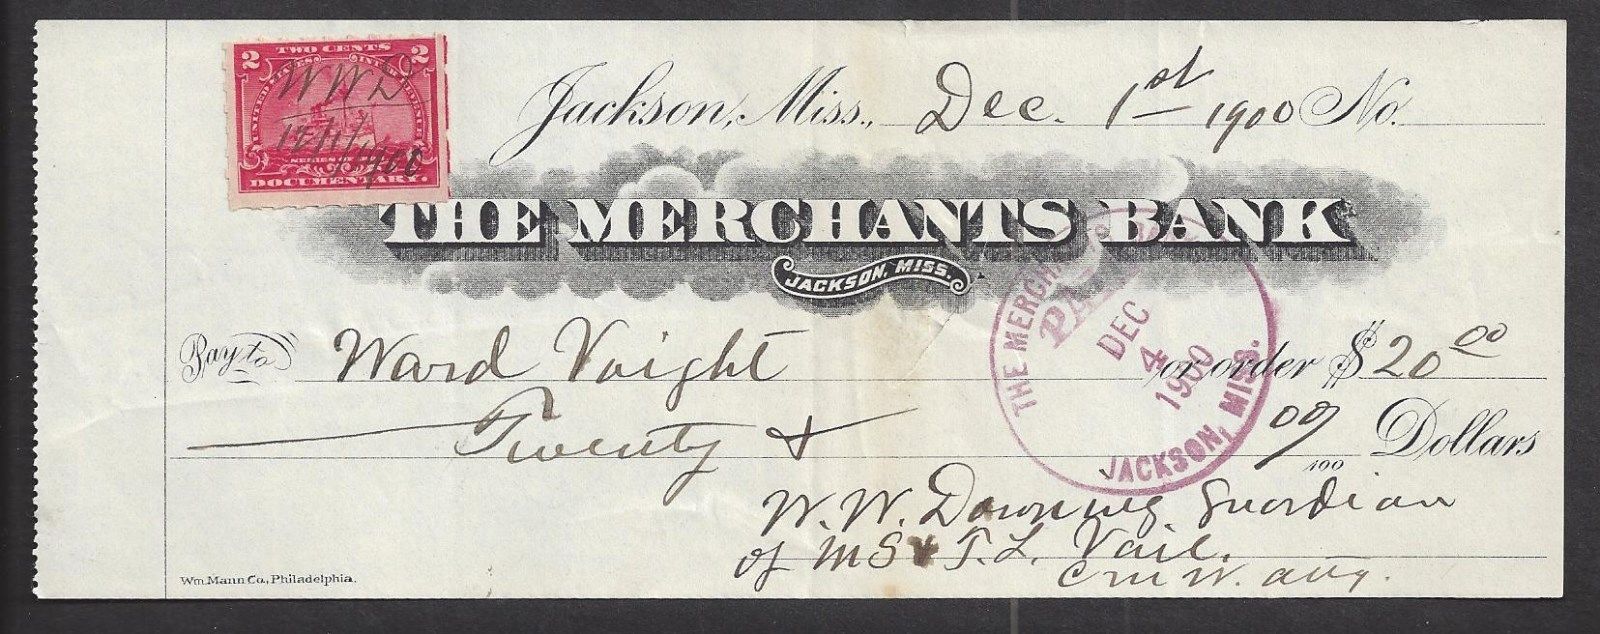 2 TWO CENTS 2
UNITED STATES INTER. REVENUE
W W D
12/1/1900
SERIES
DOCUMENTARY.
Jackson, Miss., Dec. 1st 1900 No.
THE MERCHANTS BANK
JACKSON, MISS.
Pay to Ward Voight or order $20.00
Twenty & 00/100 Dollars
THE MERCHANTS BANK
PAID
DEC
4
1900
JACKSON, MISS.
W. W. Downing Guardian
of M S & T. L. Vail.
Wm. Mann Co., Philadelphia.